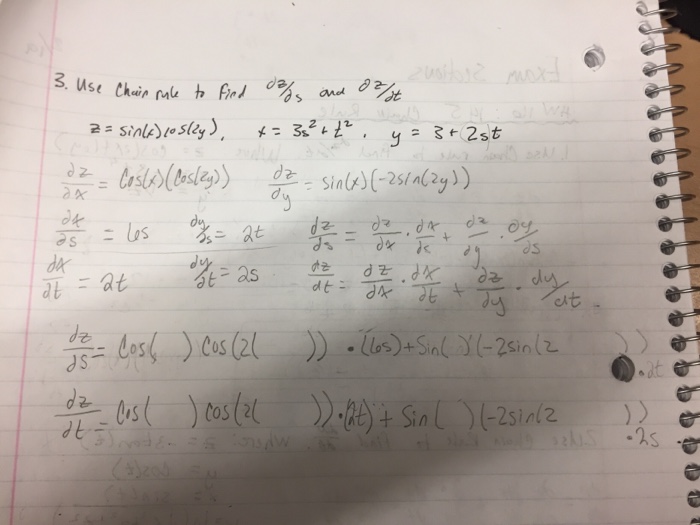 3. Use Chain rule to find ∂z/∂s and ∂z/∂t
z = sin(x)cos(2y), x = 3s²+t², y = 3+2st
∂z/∂x = Cos(x)(Cos(2y)) dz/dy = sin(x)(-2sin(2y))
∂x/∂s = 6s dy/∂s = 2t dz/ds = dz/dx · dx/ds + dz/dy · ∂y/∂s
dx/dt = 2t dy/∂t = 2s dz/dt = dz/dx · dx/∂t + ∂z/∂y · dy/dt
dz/ds = Cos( ) Cos(2( )) · (6s) + Sin( )(-2sin(2 )) · 2t
dz/dt = Cos( ) cos(2( )) · (2t) + Sin( )(-2sin(2 )) · 2s